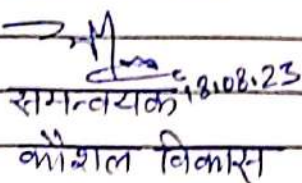 समन्वयक 18.08.23
कौशल विकास